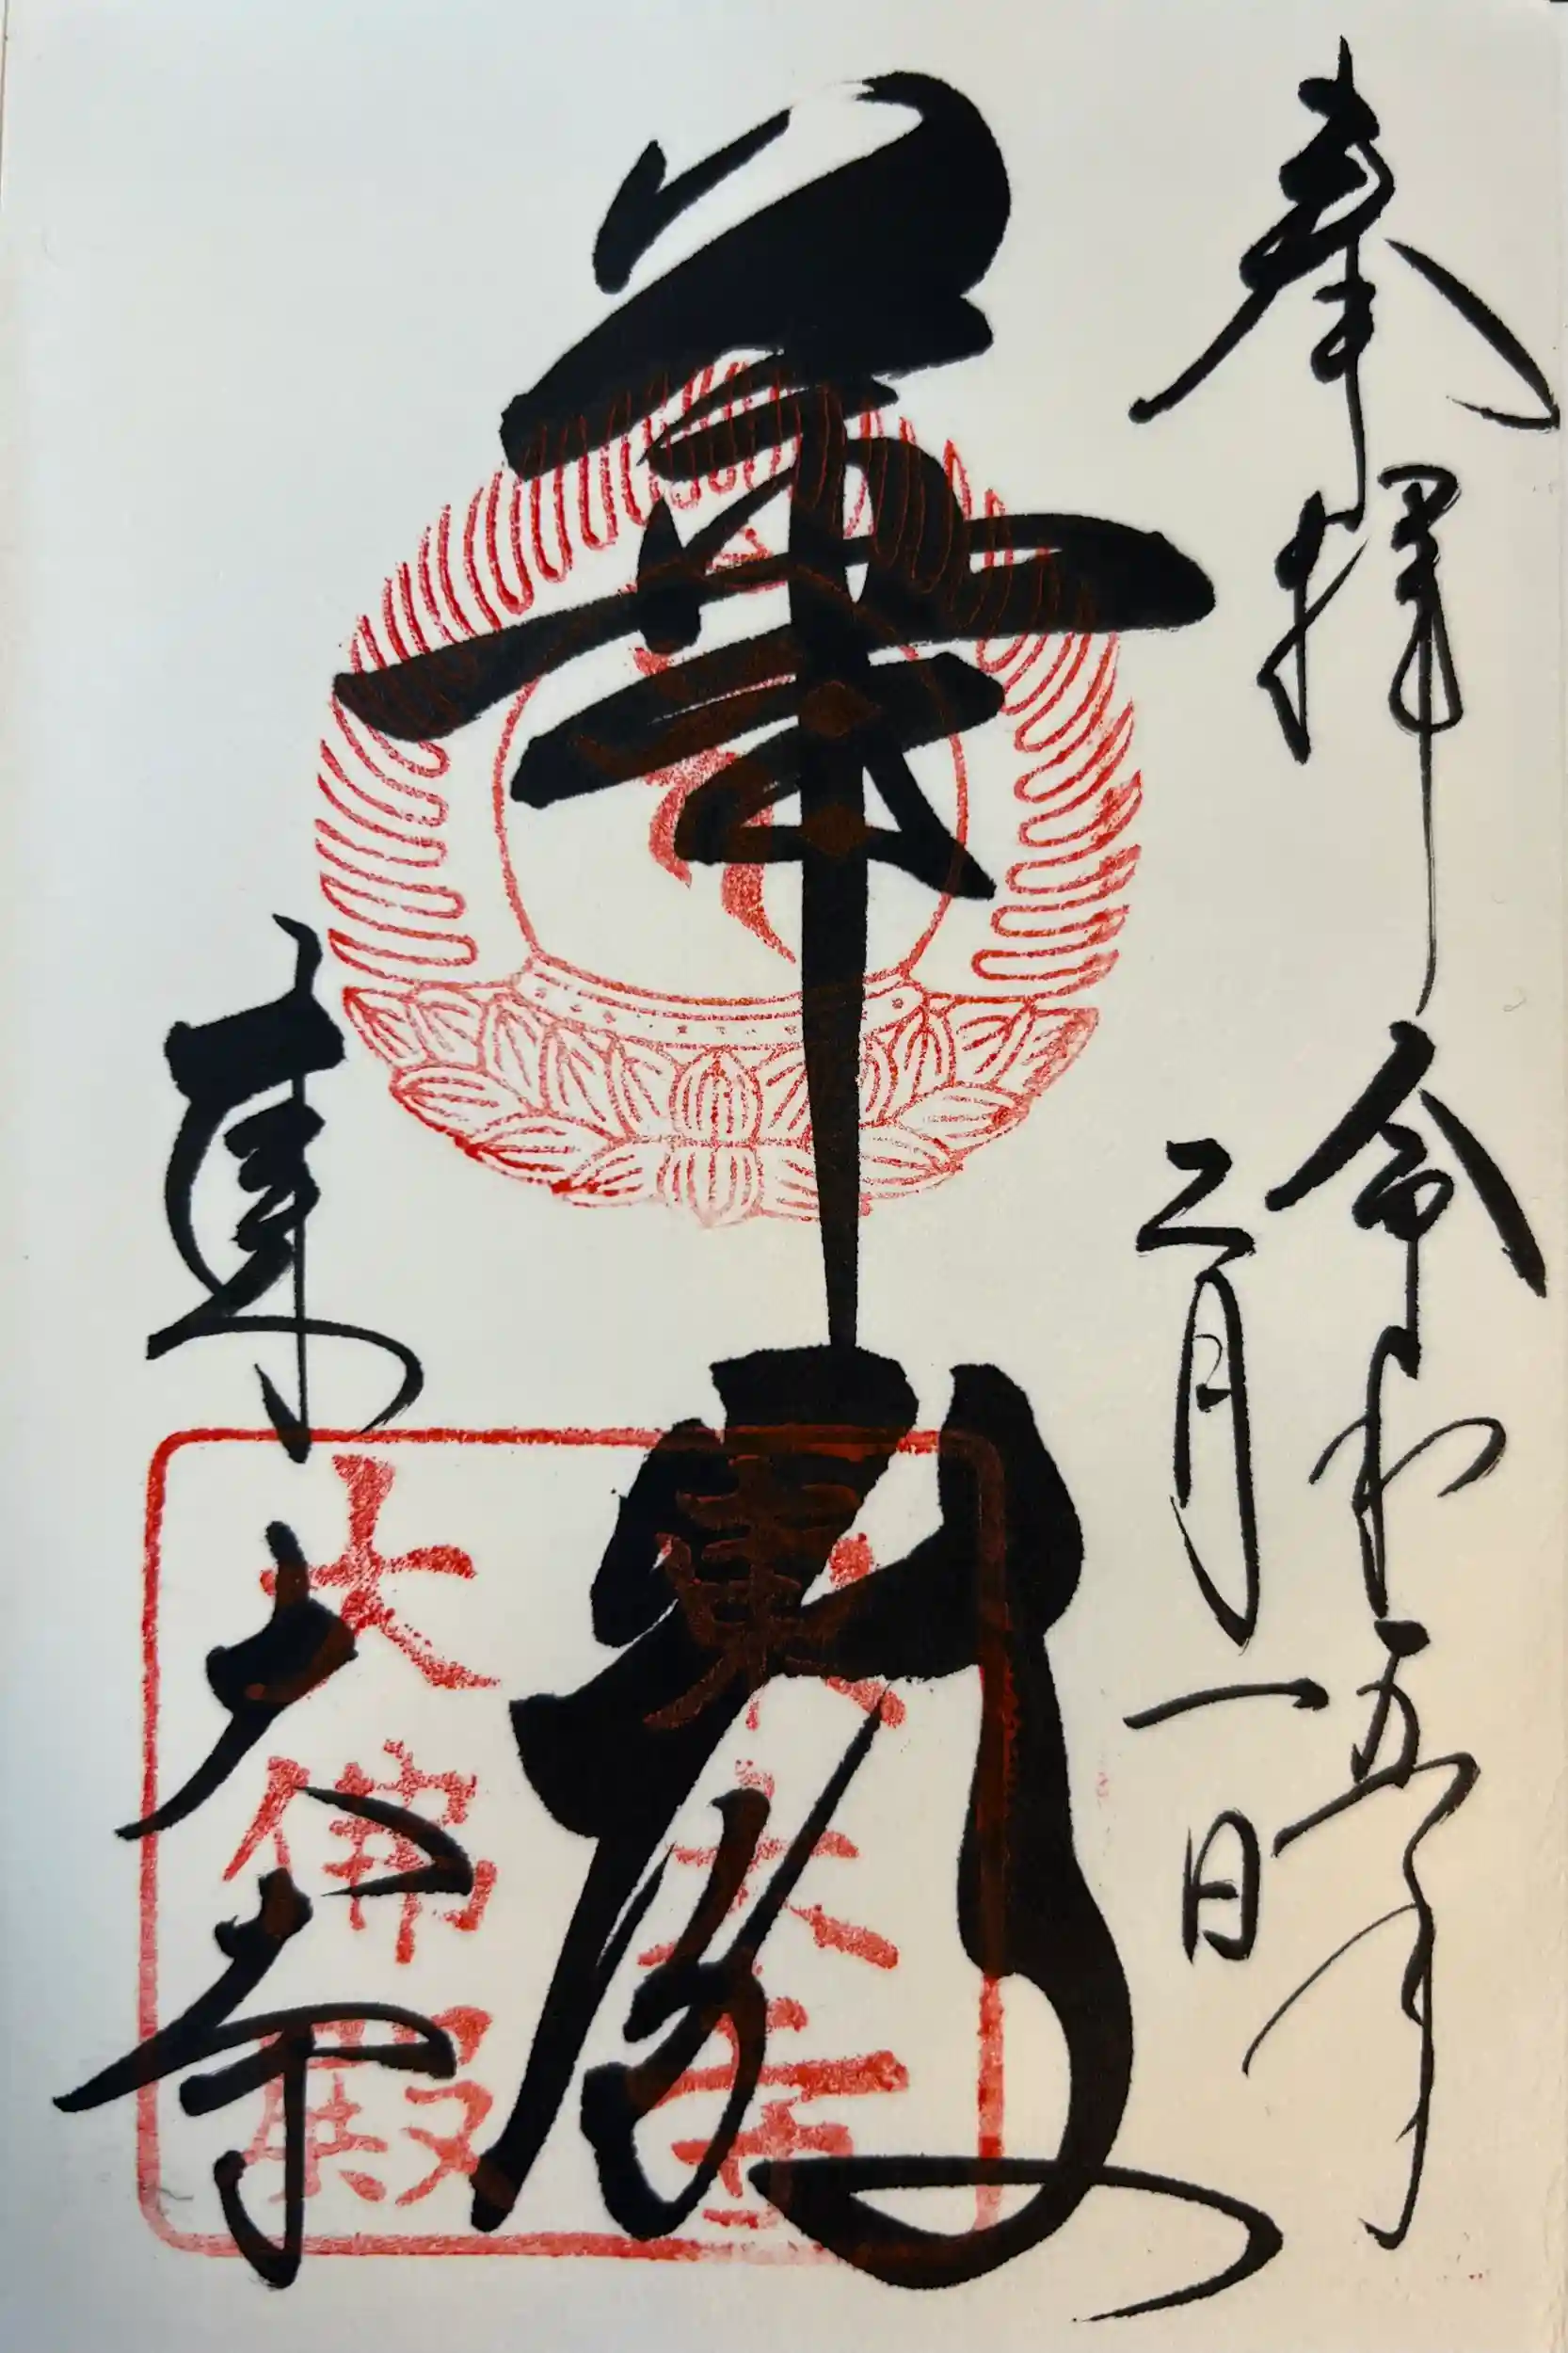 奉拝
令和五年
二月一日
華嚴
東大寺
東大寺
大佛殿